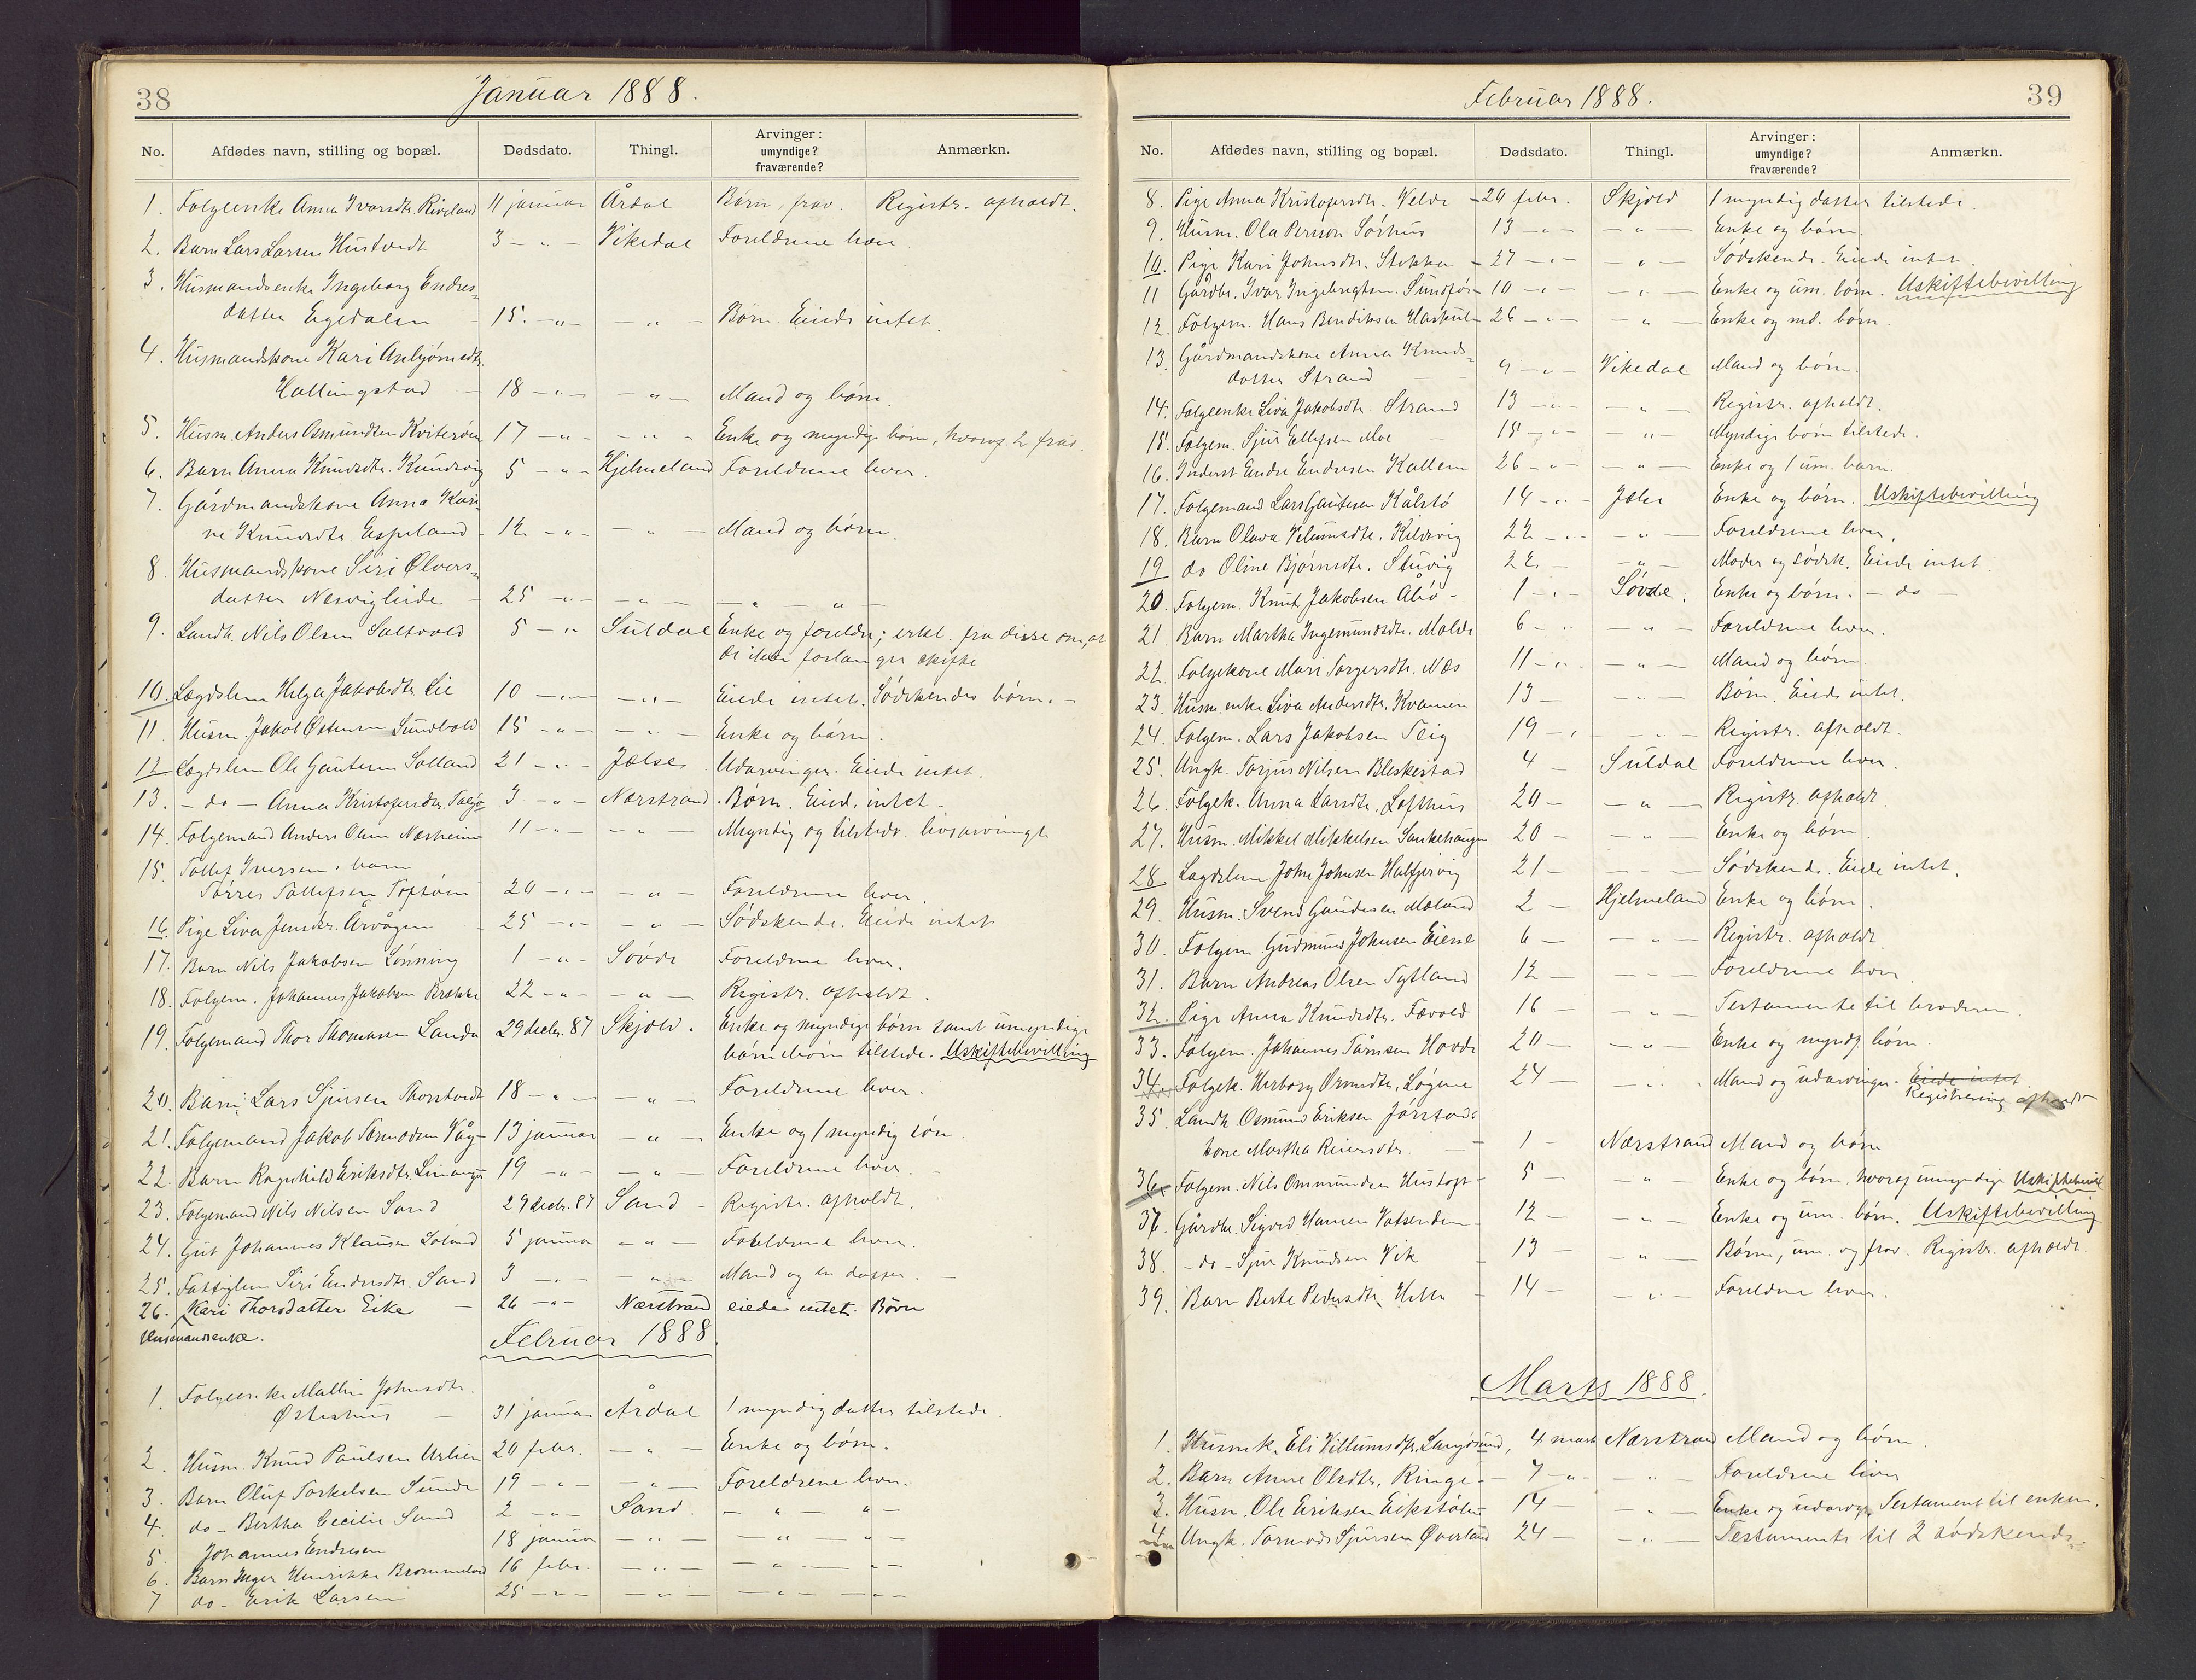 38
Januar 1888.
No. Afdødes navn, stilling og bopæl. Dødsdato. Thingl. Arvinger: umyndige? fraværende? Anmærkn.
1. Folgeenke Anna Ivarsdtr. Riveland 11 januar Årdal Børn, frav. Registr. afholdt.
2. Barn Lars Larsen Hustvedt 3 - " - Vikedal Foreldrene leve
3. Husmandsenke Ingeborg Endres-
datter Egedalen - 15. - " - - " - Børn. Eiede intet.
4. Husmandskone Kari Asbjørnsdtr.
Hallingstad - 18 - " - - " - Mand og børn.
5. Husm. Anders Osmundsen Kviterøen 17 - " - - " - Enke og myndige børn, hvoraf 2 frav.
6. Barn Anna Knudsdtr. Knudsvig 5 - " - Hjelmeland Foreldrene lever.
7. Gårdmandskone Anna Kari-
ne Knudsdtr. Espeland - 12 - " - - " - Mand og børn.
8 Husmandskone Siri Ølvers-
datter Nesviglide - 25 - " - - " - - " - " -
9. Landh. Nils Olsen Saltvold 5 - " Suldal Enke og foreldre; erkl. fra disse om, at
de ikke forlanger skifte
10. Lægdslem Helga Jakobsdtr. Lie 10 - " - - " - Eiede intet. Sødskendes børn. -
11. Husm. Jakob Østensen Sundbold 15 - " - - " - Enke og børn.
12 Lægdslem Ole Gautesen Solland 21 - " - Jælse Udarvinger. Eiede intet.
13. - do - Anna Kristofersdtr. 3 - " - Nærstrand. Børn. Eied. intet -
14. Folgemand Anders Olsen Næsheim 11 - " - - " - Myndig og tilstedv. livsarvinger
15. Tollef Iversens barn
Tørres Tollefsen 20 - " - - " - Foreldrene lever.
16. Pige Liva Jensdtr. Årvågen - 25 - " - - " - Sødskende. Eiede intet
17. Barn Nils Jakobsen Lønning 1 - " - Søvde Foreldrene lever.
18. Folgem. Johannes Jakobsen Brække 22 - " - - " - Registr. afholdt.
19. Folgemand Thor Thomassen Landa 29 decbr. 87 Skjold. Enke og myndige børn samt umyndige
børnebørn tilstede. Uskiftebevilling
20. Barn Lars Sjursen Thorstvedt 18 - " - - " - Foreldrene lever.
21. Folgemand Jakob Tormodsen Våg - 13 januar - " - Enke og 1 myndig søn.
22. Barn Ragnhild Eriksdtr. 19 - " - - " - Foreldrene lever. -
23. Folgemand Nils Nilsen Sand 29 decbr. 87 Sand - Registr. afholdt.
24. Gut Johannes Klausen Loland 5 januar - " - Foreldrene lever.
25. Fattiglem Siri Endresdtr. Sand 3 - " - - " - Mand og en datter. -
26. Kari Thorsdatter Eike - 26 - " - Nærstrand eiede intet. Børn
Husmandsenke.
Februar 1888.
1. Folgeenke Malli Johnsdtr.
Østerhus - 31 januar Årdal 1 myndig datter tilstede.
2. Husm. Knud Paulsen Urlien 20 febr. - " - Enke og børn.
3. Barn Oluf Torkelsen Sunde 19 - " - " - Foreldrene lever.
4. do - Bertha Cecilie Sand 2 - " - Sand. - " - " -
5. Johannes Endresen 18 januar - " - - " - " -
6. Barn Inger Henrikke Brommeland 16 febr. - " - - " - " -
7 do - Erik Larsen 25 - " - - " - - " - " -
39
Februar 1888.
No. Afdødes navn, stilling og bopæl. Dødsdato. Thingl. Arvinger: umyndige? fraværende? Anmærkn.
8. Pige Anna Kristofersdtr. Velde - 20 febr. Skjold 1 myndig datter tilstede.
9. Husm. Ola Person Sørhus 13 - " - - " - Enke og børn.
10. Pige Kari Johnsdtr. Stokka - 27 - " - - " - Sødskende. Eiede intet.
11 Gårdbr. Ivar Ingebrigtsen Sundfør - 10 - " - - " - Enke og um. børn. Uskiftebevilling
12. Folgem. Hans Bendiksen 26 - " - - " - Enke og md. børn.
13. Gårdmandskone Anna Knuds-
datter Strand - 9 - " - Vikedal Mand og børn.
14. Folgeenke Liva Jakobsdtr. Strand 13 - " - - " Registr. afholdt.
15. Folgem. Sjur Ellefsen Moe - 15 - " - - " - Myndige børn tilstede.
16. Inderst Endre Endresen Kallem 26 - " - - " - Enke og 1 um. barn.
17. Folgemand Lars Gautesen Kålstø 14 - " - Jælse Enke og børn. Uskiftebevilling
18. Barn Olava Vilumsdtr. Kilevig 22 - " - - " - Foreldrene lever.
19 do Oline Bjørnsdtr. Stuvig 22 - - " - Moder og sødsk. Eiede intet.
20. Folgem. Knut Jakobsen Abø - 1 - " - Søvde. Enke og børn. - do -
21. Barn Martha Ingemundsdtr. Molde 6 - " - " - Foreldrene lever.
22. Folgekone Mari Torgersdtr. Næs 11 - " - - " - Mand og børn
23. Husm. enke Liva Andersdtr. Kvamen 13 - - " - Børn. Eiede intet.
24. Folgem. Lars Jakobsen Teig 19 - " - " - Registr. afholdt.
25. Ungk. Torjus Nilsen Bleskestad 4 - Suldal Foreldrene lever.
26. Folgek. Anna Larsdtr. Lofthus 20 - - " - Registr. afholdt.
27. Husm. Mikkel Mikkelsen 20 - - " - Enke og børn.
28 Lægdslem John Johnsen 21 - - " - Sødskende. Eiede intet.
29. Husm. Svend Gaudesen Moland 2 - Hjelmeland Enke og børn.
30. Folgem. Gudmund Johnsen Eiene 6 - - " - Registr. afholdt.
31. Barn Andreas Olsen Tytland 12 - - " - Foreldrene lever
32. Pige Anna Knudsdtr. Fævold 16 - - " - Testamente til broderen.
33. Folgem. Johannes Hovde 20 - - " - Enke og myndg. børn.
34. Folgek. Herborg Osmundtr. Løgene 24 - - " - Mand og udarvinger. Eiede intet
Registrering afholdt
35. Landh. Osmund Eriksen Jørstads
kone Martha Reiersdtr. - 1 - Nærstrand Mand og børn
36. Folgem. Nils Ommundsen Hustoft - 5 - - " - Enke og børn, hvoraf umyndige Uskiftebevil
37. Gårdbr. Sigvard Hansen Vatsenden - 12 - - " - Enke og um. børn. Uskiftebevilling
38. - do - Sjur Knudsen Vik - 13 - - " - Børn, um. og frav. Registr. afholdt
39. Barn Berte Pedersdtr. Helle - 14 - - " - Foreldrene lever.
Marts 1888.
1. Husmk. Eli Villumsdtr. Langesund, 4 marts Nærstrand Mand og børn.
2. Barn Anne Olsdtr. Ringe - 7 - " - - " - Foreldrene lever
3. Husm. Ole Eriksen Eikstølen 14 - - " - Enke og udarvgr. Testament til enken.
4. Ungk. Tormod Sjursen Øverland 24 - - " - Testamente til 2 sødskende.